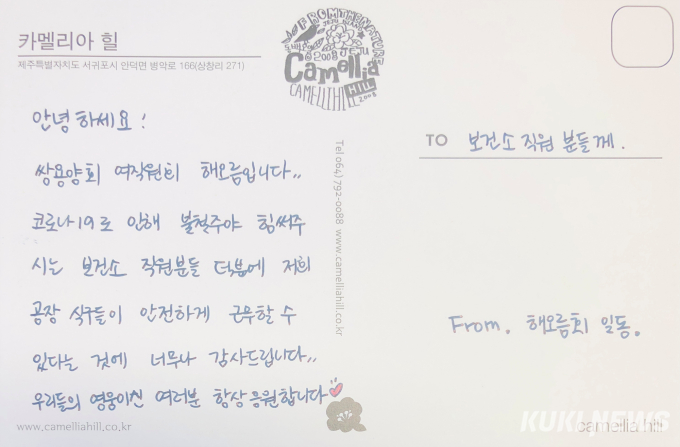 카멜리아 힐
제주특별자치도 서귀포시 안덕면 병악로 166(상창리 271)
FROM THE NATURE
JEJU
Camellia
CAMELLIA HILL
2008
안녕하세요!
쌍용양회 여직원회 해오름입니다..
코로나19로 인해 불철주야 힘써주
시는 보건소 직원분들 덕붙에 저희
공장 식구들이 안전하게 근무할 수
있다는 것에 너무나 감사드립니다..
우리들의 영웅이신 여러분 항상 응원합니다
Tel 064) 792-0088 www.camelliahill.co.kr
TO 보건소 직원 분들께.
From. 해오름회 일동.
www.camelliahill.co.kr
camellia hill
KUKI NEWS